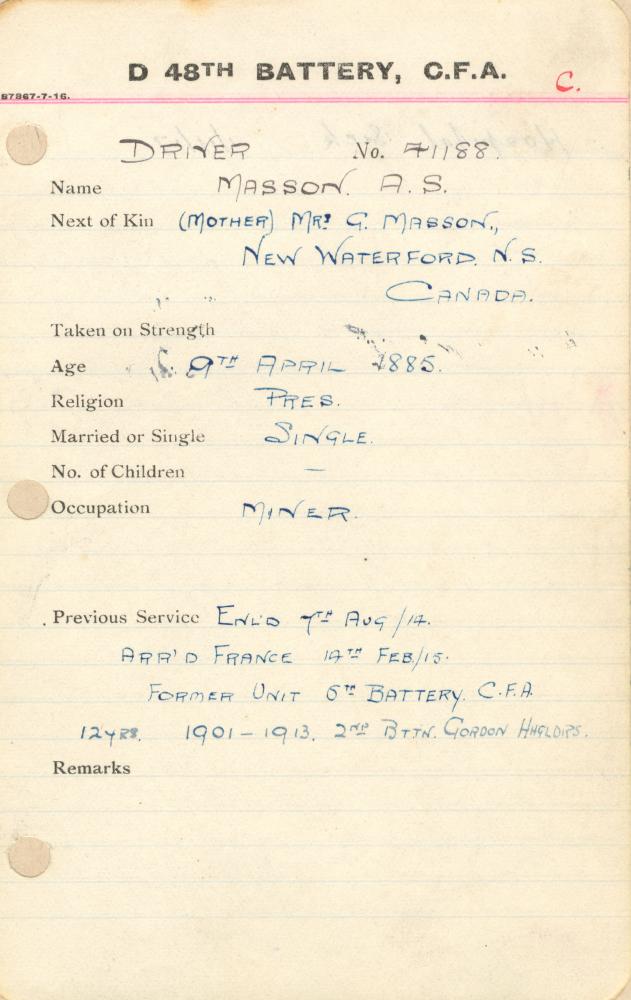 D 48TH BATTERY, C.F.A.
C.
87867-7-16.
DRIVER No. 41188.
Name MASSON. A.S.
Next of Kin (MOTHER) MRS G. MASSON.,
NEW WATERFORD. N.S.
CANADA.
Taken on Strength
Age 9TH APRIL 1885.
Religion PRES.
Married or Single SINGLE.
No. of Children —
Occupation MINER.
Previous Service ENL'D 7TH AUG/14.
ARR'D FRANCE 14TH FEB/15.
FORMER UNIT 6TH BATTERY. C.F.A.
12 YRS. 1901 – 1913. 2ND BTTN. GORDON HHGLDRS.
Remarks